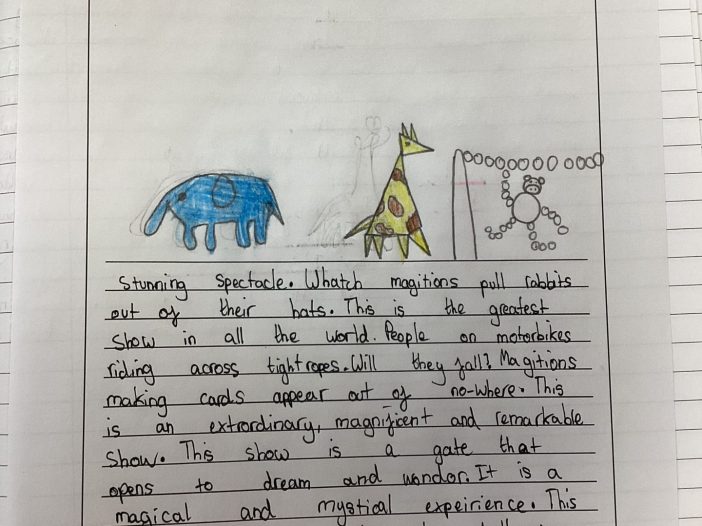 Stunning spectacle. Whatch magitions pull rabbits
out of their hats. This is the greatest
show in all the world. People on motorbikes
riding across tightropes. Will they fall? Magitions
making cards appear out of no-where. This
is an extrordinary, magnificent and remarkable
show. This show is a gate that
opens to dream and wondor. It is a
magical and mystical expeirience. This